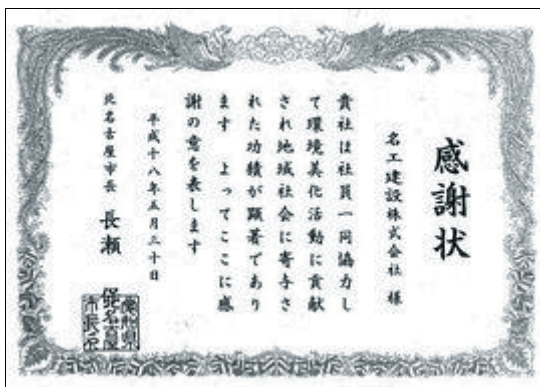 感謝状
名工建設株式会社 様
貴社は社員一同協力し
て環境美化活動に貢献
され地域社会に寄与さ
れた功績が顕著であり
ます よってここに感
謝の意を表します
平成十八年五月三十日
北名古屋市長 長瀬 保
愛知県
北名古屋
市長之印